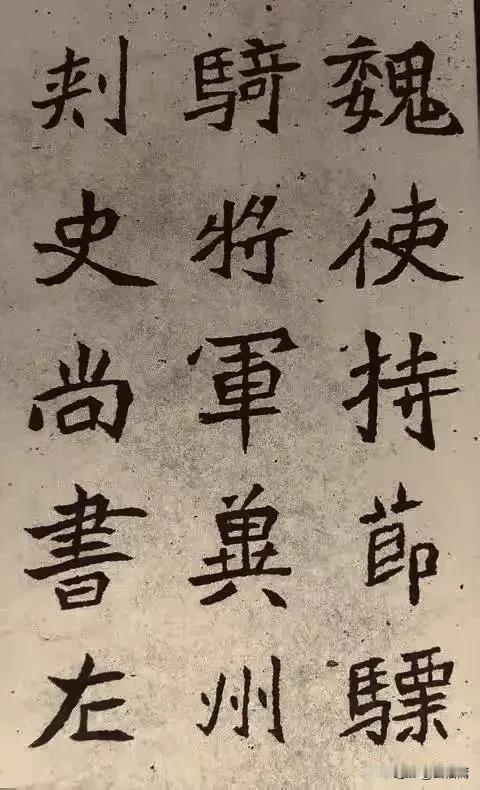 魏使持節驃
騎將軍冀州
刾史尚書左